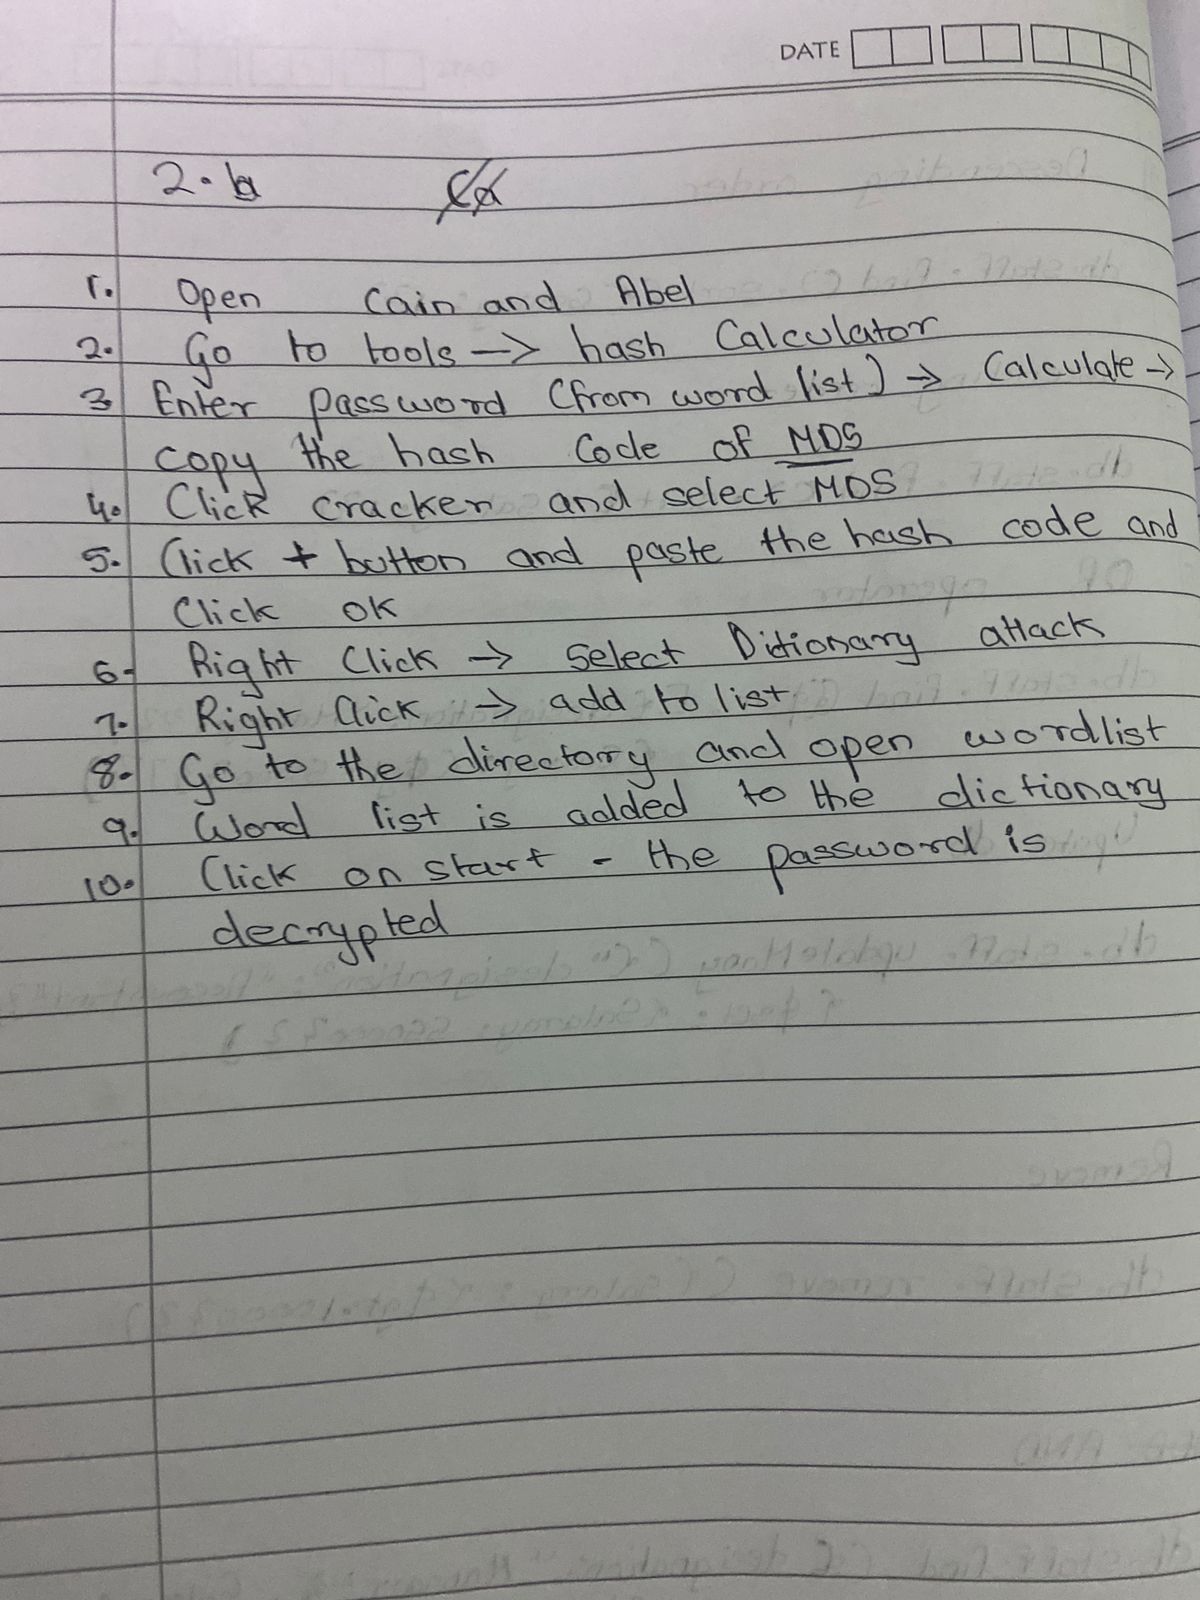 DATE
2. b
1. Open Cain and Abel
2. Go to tools → hash Calculator
3. Enter password (from word list) → Calculate →
copy the hash Code of MD5
4. Click cracker and select MD5
5. Click + button and paste the hash code and
Click OK
6. Right Click → Select Ditionary attack
7. Right Click → add to list
8. Go to the directory and open wordlist
9. Word list is added to the dictionary
10. Click on start - the password is
decrypted